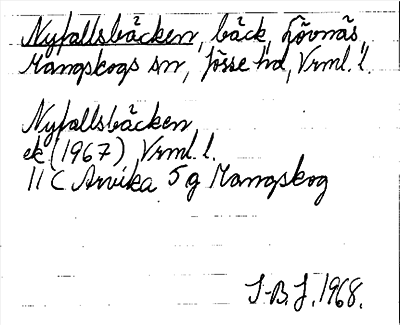 Nyfallsbäcken, bäck, Lövnäs,
Mangskogs sn, Jösse hd, Vrml. l.
Nyfallsbäcken
ek (1967) Vrml. l.
11 C Arvika 5 g Mangskog
I-B.J. 1968.